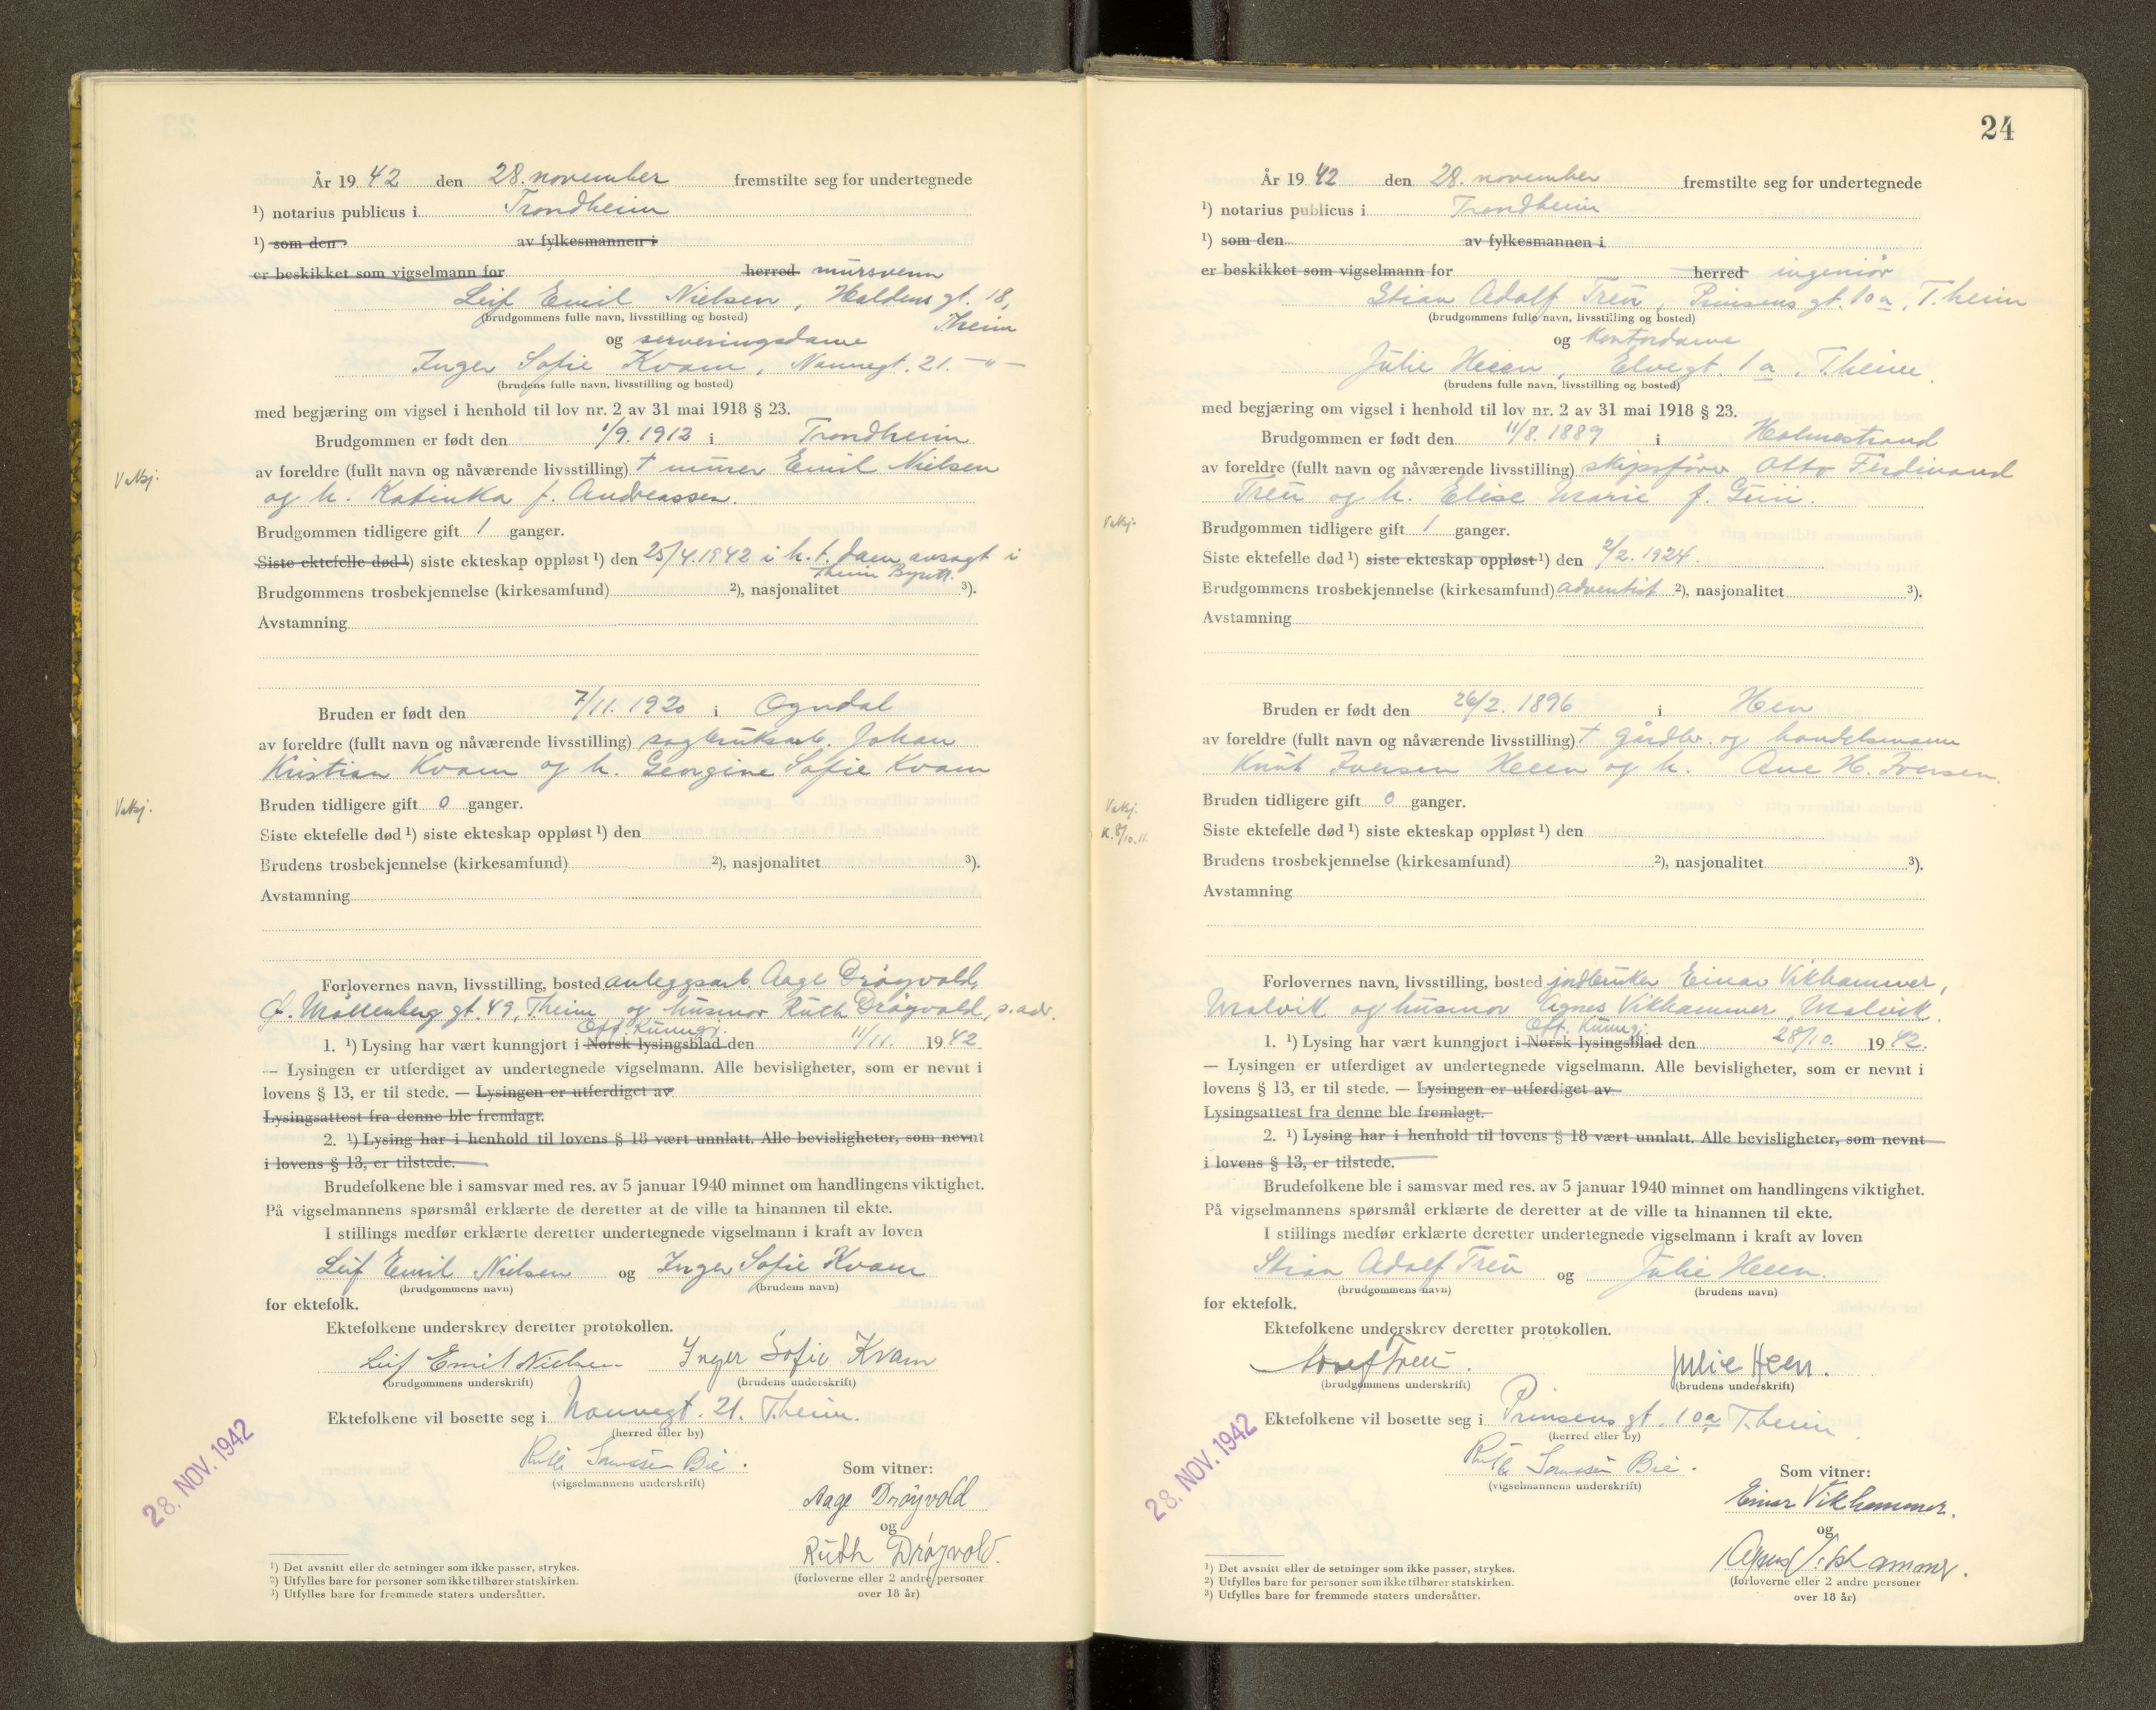 År 19 42 den 28. november fremstilte seg for undertegnede
¹) notarius publicus i Trondheim
¹) som den av fylkesmannen i
er beskikket som vigselmann for herred mursvenn
Leif Emil Nielsen, Haldens gt. 18,
(brudgommens fulle navn, livsstilling og bosted) Theim
og serveringsdame
Inger Sofie Kvam, Nannegt. 21. —"—
(brudens fulle navn, livsstilling og bosted)
med begjæring om vigsel i henhold til lov nr. 2 av 31 mai 1918 § 23.
Brudgommen er født den 1/9. 1912 i Trondheim
av foreldre (fullt navn og nåværende livsstilling) † murer Emil Nielsen
og h. Katinka f. Andreassen.
Vaksj.
Brudgommen tidligere gift 1 ganger.
Siste ektefelle død ¹) siste ekteskap oppløst ¹) den 25/4. 1942 i h. t. dom avsagt i
Theim Byrett.
Brudgommens trosbekjennelse (kirkesamfund) ²), nasjonalitet ³).
Avstamning
Bruden er født den 7/11. 1920 i Ogndal
av foreldre (fullt navn og nåværende livsstilling) sagbruksarb. Johan
Kristian Kvam og h. Georgine Sofie Kvam
Vaksj.
Bruden tidligere gift 0 ganger.
Siste ektefelle død ¹) siste ekteskap oppløst ¹) den
Brudens trosbekjennelse (kirkesamfund) ²), nasjonalitet ³).
Avstamning
Forlovernes navn, livsstilling, bosted anleggsarb. Aage Drøyvold,
Ø. Møllenberg gt. 49, Theim og husmor Ruth Drøyvold, s. adr.
Off. Kunngj.
1. ¹) Lysing har vært kunngjort i Norsk lysingsblad den 11/11. 19 42.
— Lysingen er utferdiget av undertegnede vigselmann. Alle bevisligheter, som er nevnt i
lovens § 13, er til stede. — Lysingen er utferdiget av
Lysingsattest fra denne ble fremlagt.
2. ¹) Lysing har i henhold til lovens § 18 vært unnlatt. Alle bevisligheter, som nevnt
i lovens § 13, er tilstede.
Brudefolkene ble i samsvar med res. av 5 januar 1940 minnet om handlingens viktighet.
På vigselmannens spørsmål erklærte de deretter at de ville ta hinannen til ekte.
I stillings medfør erklærte deretter undertegnede vigselmann i kraft av loven
Leif Emil Nielsen og Inger Sofie Kvam
(brudgommens navn) (brudens navn)
for ektefolk.
Ektefolkene underskrev deretter protokollen.
Leif Emil Nielsen Inger Sofie Kvam
(brudgommens underskrift) (brudens underskrift)
Ektefolkene vil bosette seg i Nannegt. 21. T.heim.
(herred eller by)
28. NOV. 1942
Ruth Bie.
(vigselmannens underskrift)
Som vitner:
Aage Drøyvold
og
Ruth Drøyvold.
(forloverne eller 2 andre personer
over 18 år)
¹) Det avsnitt eller de setninger som ikke passer, strykes.
²) Utfylles bare for personer som ikke tilhører statskirken.
³) Utfylles bare for fremmede staters undersåtter.
24
År 19 42 den 28. november fremstilte seg for undertegnede
¹) notarius publicus i Trondheim
¹) som den av fylkesmannen i
er beskikket som vigselmann for herred ingeniør
Stian Adolf Treu, Prinsens gt. 10a, T.heim
(brudgommens fulle navn, livsstilling og bosted)
og Kontordame
Julie Heen, Elvegt. 1a, T.heim.
(brudens fulle navn, livsstilling og bosted)
med begjæring om vigsel i henhold til lov nr. 2 av 31 mai 1918 § 23.
Brudgommen er født den 11/8. 1889 i Holmestrand
av foreldre (fullt navn og nåværende livsstilling) skipsfører Otto Ferdinand
Treu og h. Elise Marie f.
Vaksj.
Brudgommen tidligere gift 1 ganger.
Siste ektefelle død ¹) siste ekteskap oppløst ¹) den 2/2. 1924.
Brudgommens trosbekjennelse (kirkesamfund) adventist ²), nasjonalitet ³).
Avstamning
Bruden er født den 26/2. 1896 i Hen
av foreldre (fullt navn og nåværende livsstilling) † gårdbr. og handelsmann
Knut Iversen Heen og h. Ane H. Iversen.
Vaksj.
K. 8/10. 11.
Bruden tidligere gift 0 ganger.
Siste ektefelle død ¹) siste ekteskap oppløst ¹) den
Brudens trosbekjennelse (kirkesamfund) ²), nasjonalitet ³).
Avstamning
Forlovernes navn, livsstilling, bosted jordbruker Einar Vikhammer,
Malvik og husmor Agnes Vikhammer, Malvik.
Off. Kunngj.
1. ¹) Lysing har vært kunngjort i Norsk lysingsblad den 28/10. 19 42.
— Lysingen er utferdiget av undertegnede vigselmann. Alle bevisligheter, som er nevnt i
lovens § 13, er til stede. — Lysingen er utferdiget av
Lysingsattest fra denne ble fremlagt.
2. ¹) Lysing har i henhold til lovens § 18 vært unnlatt. Alle bevisligheter, som nevnt
i lovens § 13, er tilstede.
Brudefolkene ble i samsvar med res. av 5 januar 1940 minnet om handlingens viktighet.
På vigselmannens spørsmål erklærte de deretter at de ville ta hinannen til ekte.
I stillings medfør erklærte deretter undertegnede vigselmann i kraft av loven
Stian Adolf Treu og Julie Heen.
(brudgommens navn) (brudens navn)
for ektefolk.
Ektefolkene underskrev deretter protokollen.
Treu. Julie Heen.
(brudgommens underskrift) (brudens underskrift)
Ektefolkene vil bosette seg i Prinsens gt. 10a T.heim.
(herred eller by)
28. NOV. 1942
Ruth Bie.
(vigselmannens underskrift)
Som vitner:
Einar Vikhammer.
og
Agnes Vikhammer.
(forloverne eller 2 andre personer
over 18 år)
¹) Det avsnitt eller de setninger som ikke passer, strykes.
²) Utfylles bare for personer som ikke tilhører statskirken.
³) Utfylles bare for fremmede staters undersåtter.